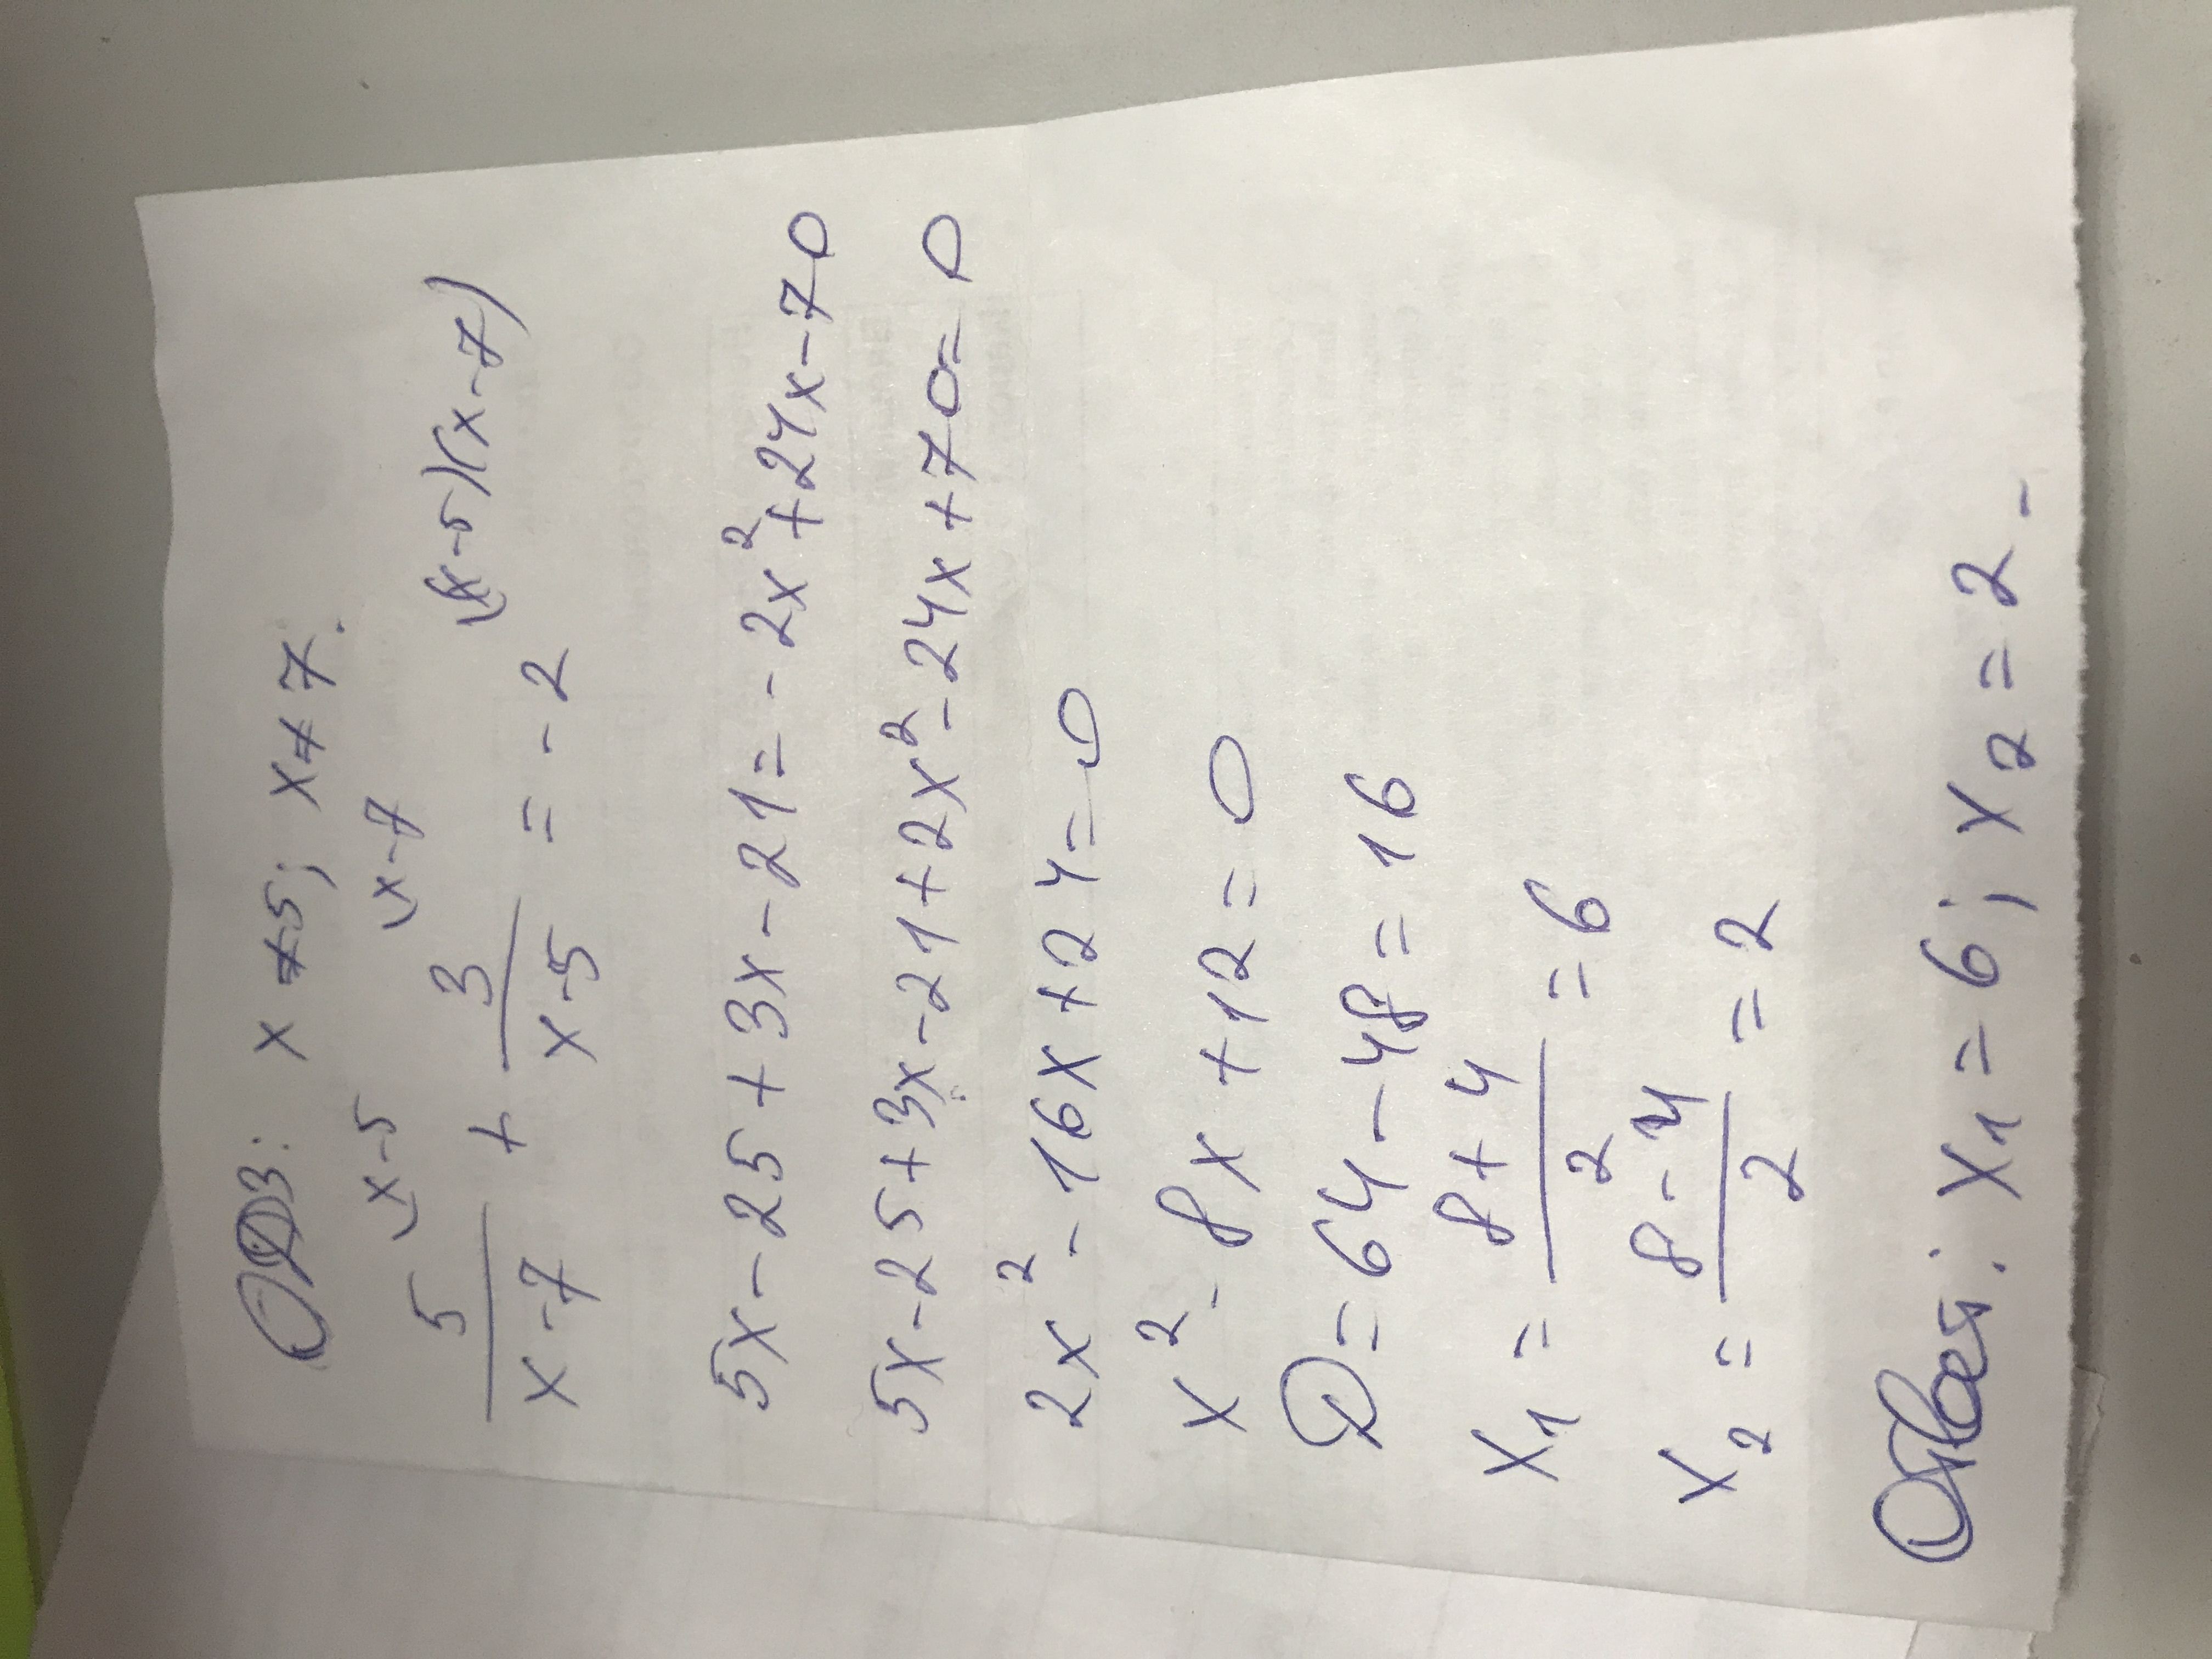 ОДЗ: x ≠ 5; x ≠ 7.
5 \x-5 / x-7 + 3 \x-7 / x-5 = -2 \(x-5)(x-7)
5x-25+3x-21=-2x²+24x-70
5x-25+3x-21+2x²-24x+70=0
2x²-16x+24=0
x²-8x+12=0
D=64-48=16
x₁ = 8+4 / 2 = 6
x₂ = 8-4 / 2 = 2
Ответ: x₁=6; x₂=2.